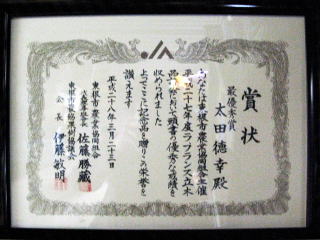 賞状
最優秀賞
太田德幸殿
あなたは東根市農業協同組合主催
平成二十七年度ラ・フランス立木
品評会において頭書の優秀な成績を
収められました
よってここに記念品を贈りこの栄誉を
讃えます
平成二十八年三月二十三日
東根市農業協同組合
佐藤勝藏
会長 伊藤敏明